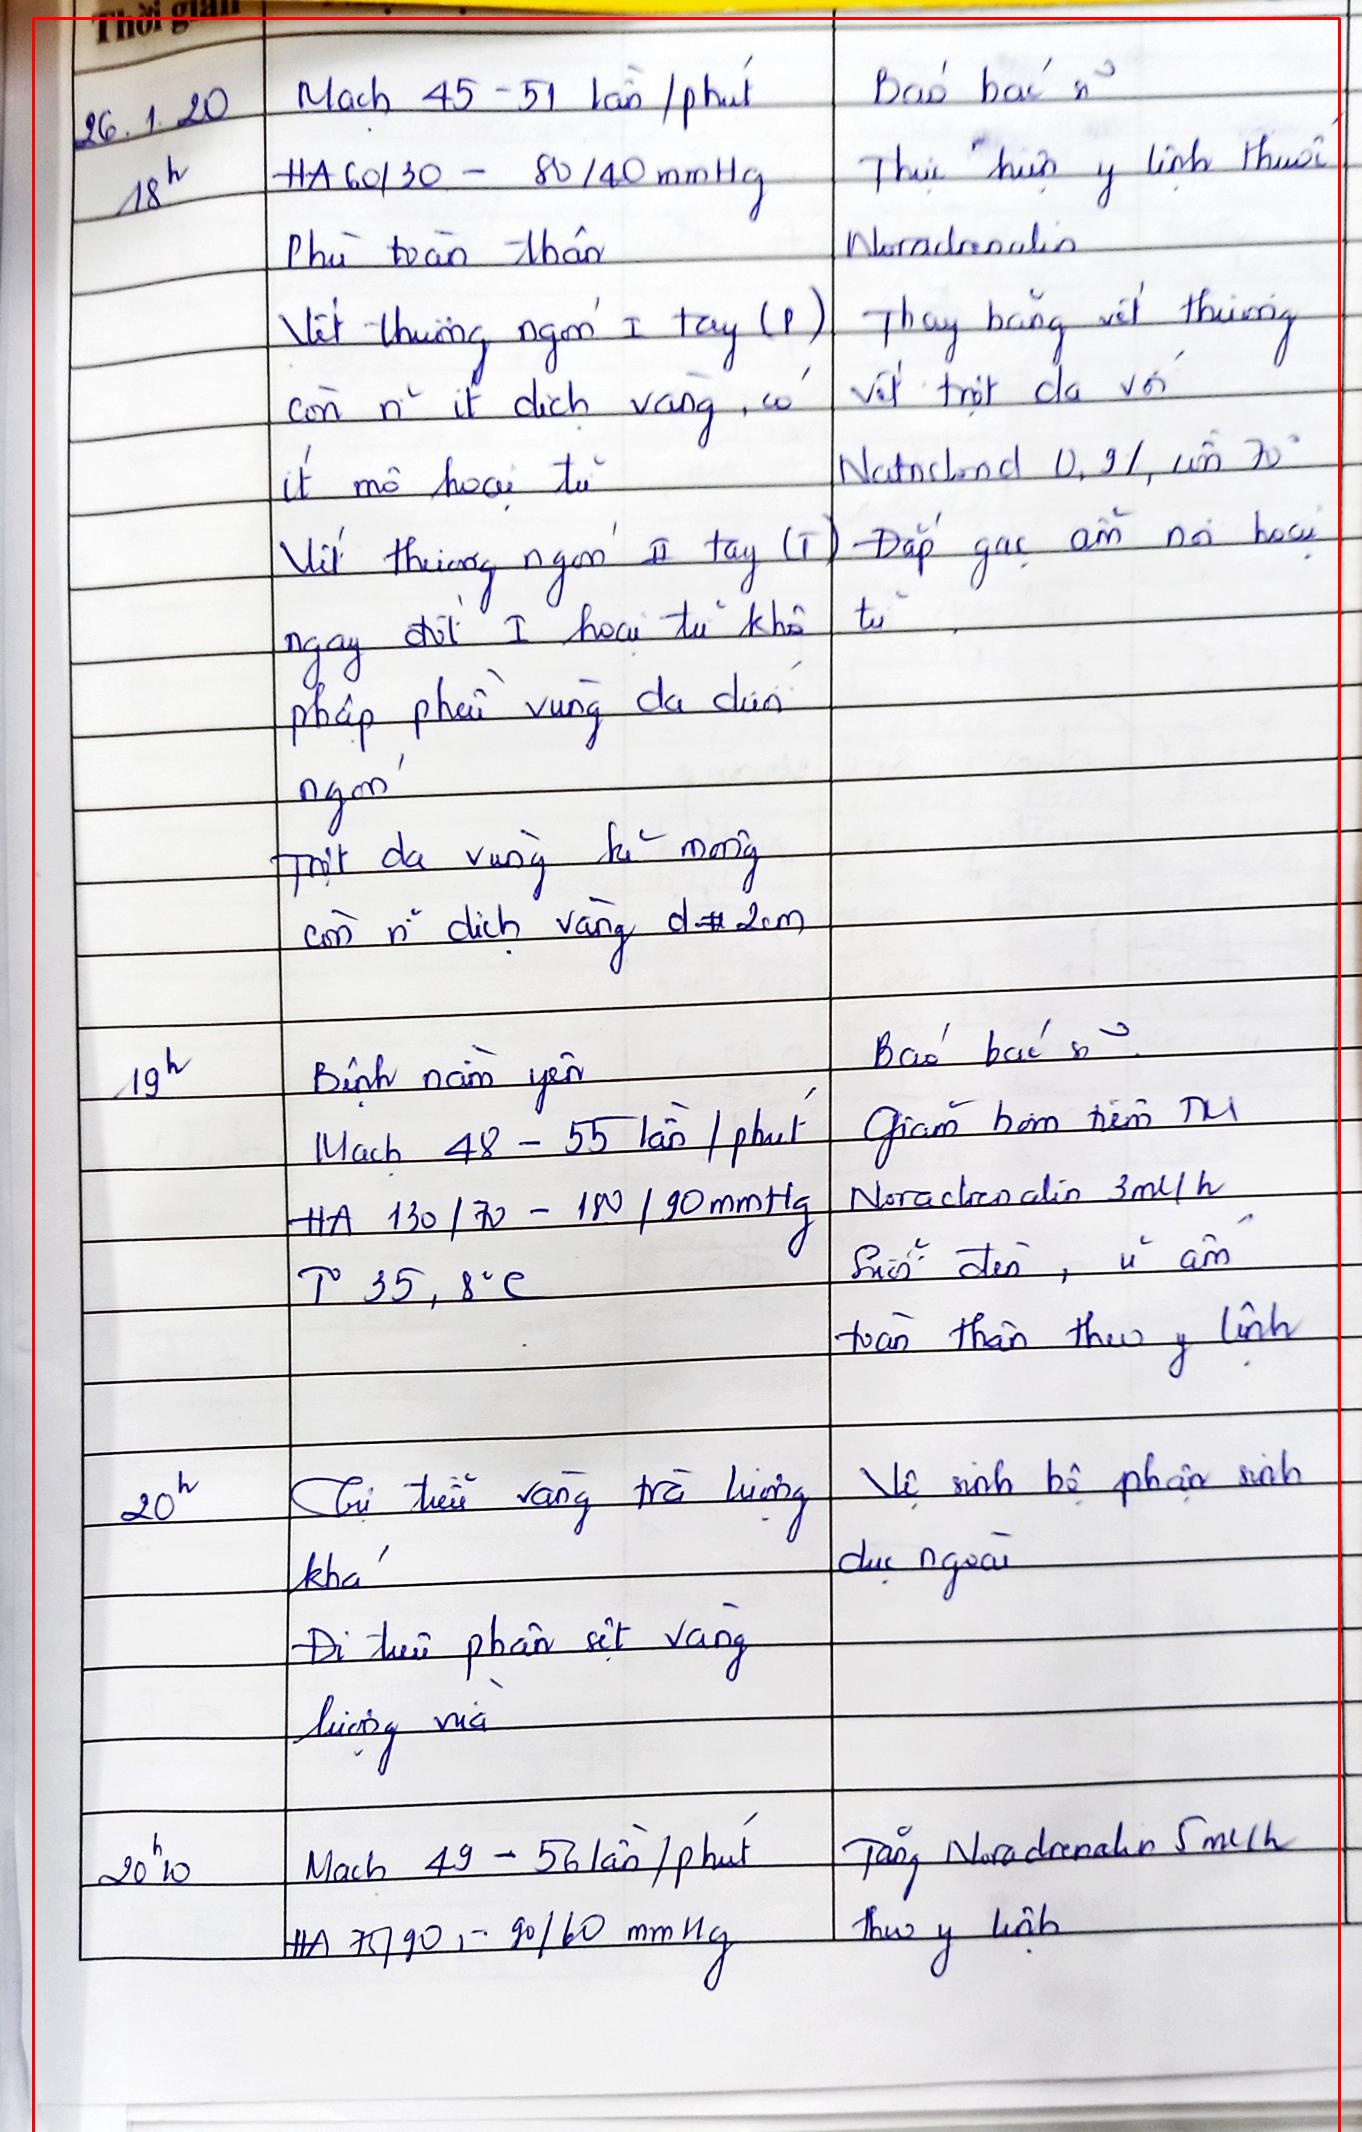 Thời gian
26.1.20
18h
Mạch 45 - 51 lần/phút
HA 60/30 - 80/40 mmHg
Phù toàn thân
Vết thương ngón I tay (P)
còn rỉ ít dịch vàng, có
ít mô hoại tử
Vết thương ngón II tay (T)
ngay đốt I hoại tử khô
phập phều vùng da dưới
ngón
Trợt da vùng kẽ mông
còn rỉ dịch vàng d # 2cm
Báo bác sĩ
Thực hiện y lệnh thuốc
Noradrenalin
Thay băng vết thương
vết trợt da với
Natriclorid 0,9%, cồn 70°
Đắp gạc ẩm nơi hoại
tử
19h
Bệnh nằm yên
Mạch 48 - 55 lần/phút
HA 130/70 - 180/90mmHg
T° 35,8°C
Báo bác sĩ
Giảm bơm tiêm TM
Noradrenalin 3ml/h
Sưởi đèn, ủ ấm
toàn thân theo y lệnh
20h
Tự tiểu vàng trà lượng
khá
Đi tiêu phân sệt vàng
lượng vừa
Vệ sinh bộ phận sinh
dục ngoài
20h10
Mạch 49 - 56 lần/phút
HA - 90/60 mmHg
Tăng Noradrenalin 5ml/h
theo y lệnh